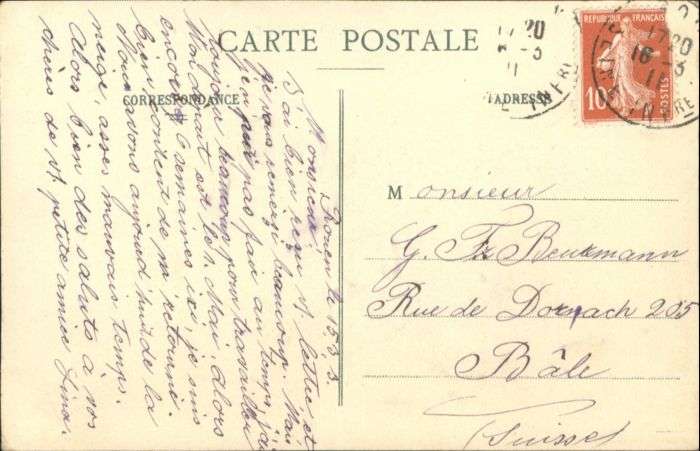 CARTE POSTALE
CORRESPONDANCE
L'ADRESSE
RÉPUBLIQUE FRANÇAISE
10
POSTES
17 20
16 - 3
11
Rouen le 15 3
Monsieur
J'ai bien reçu v. lettre et
vous remerci beaucoup. Mais
j'en pas au temps, j'ai
toujour beaucoup pour travailler
Mon est le 1. Mai. alors
encore 6 semaines ici, je suis
bien content de m' retourné.
Nous avons aujourd'huit de la
neige, asses mauvais temps.
Alors bien des saluts à vos
chères de v. petite amiee Lina.
Monsieur
G. Fz Beukmann
Rue de Dornach 205
Bâle
(Suisse)